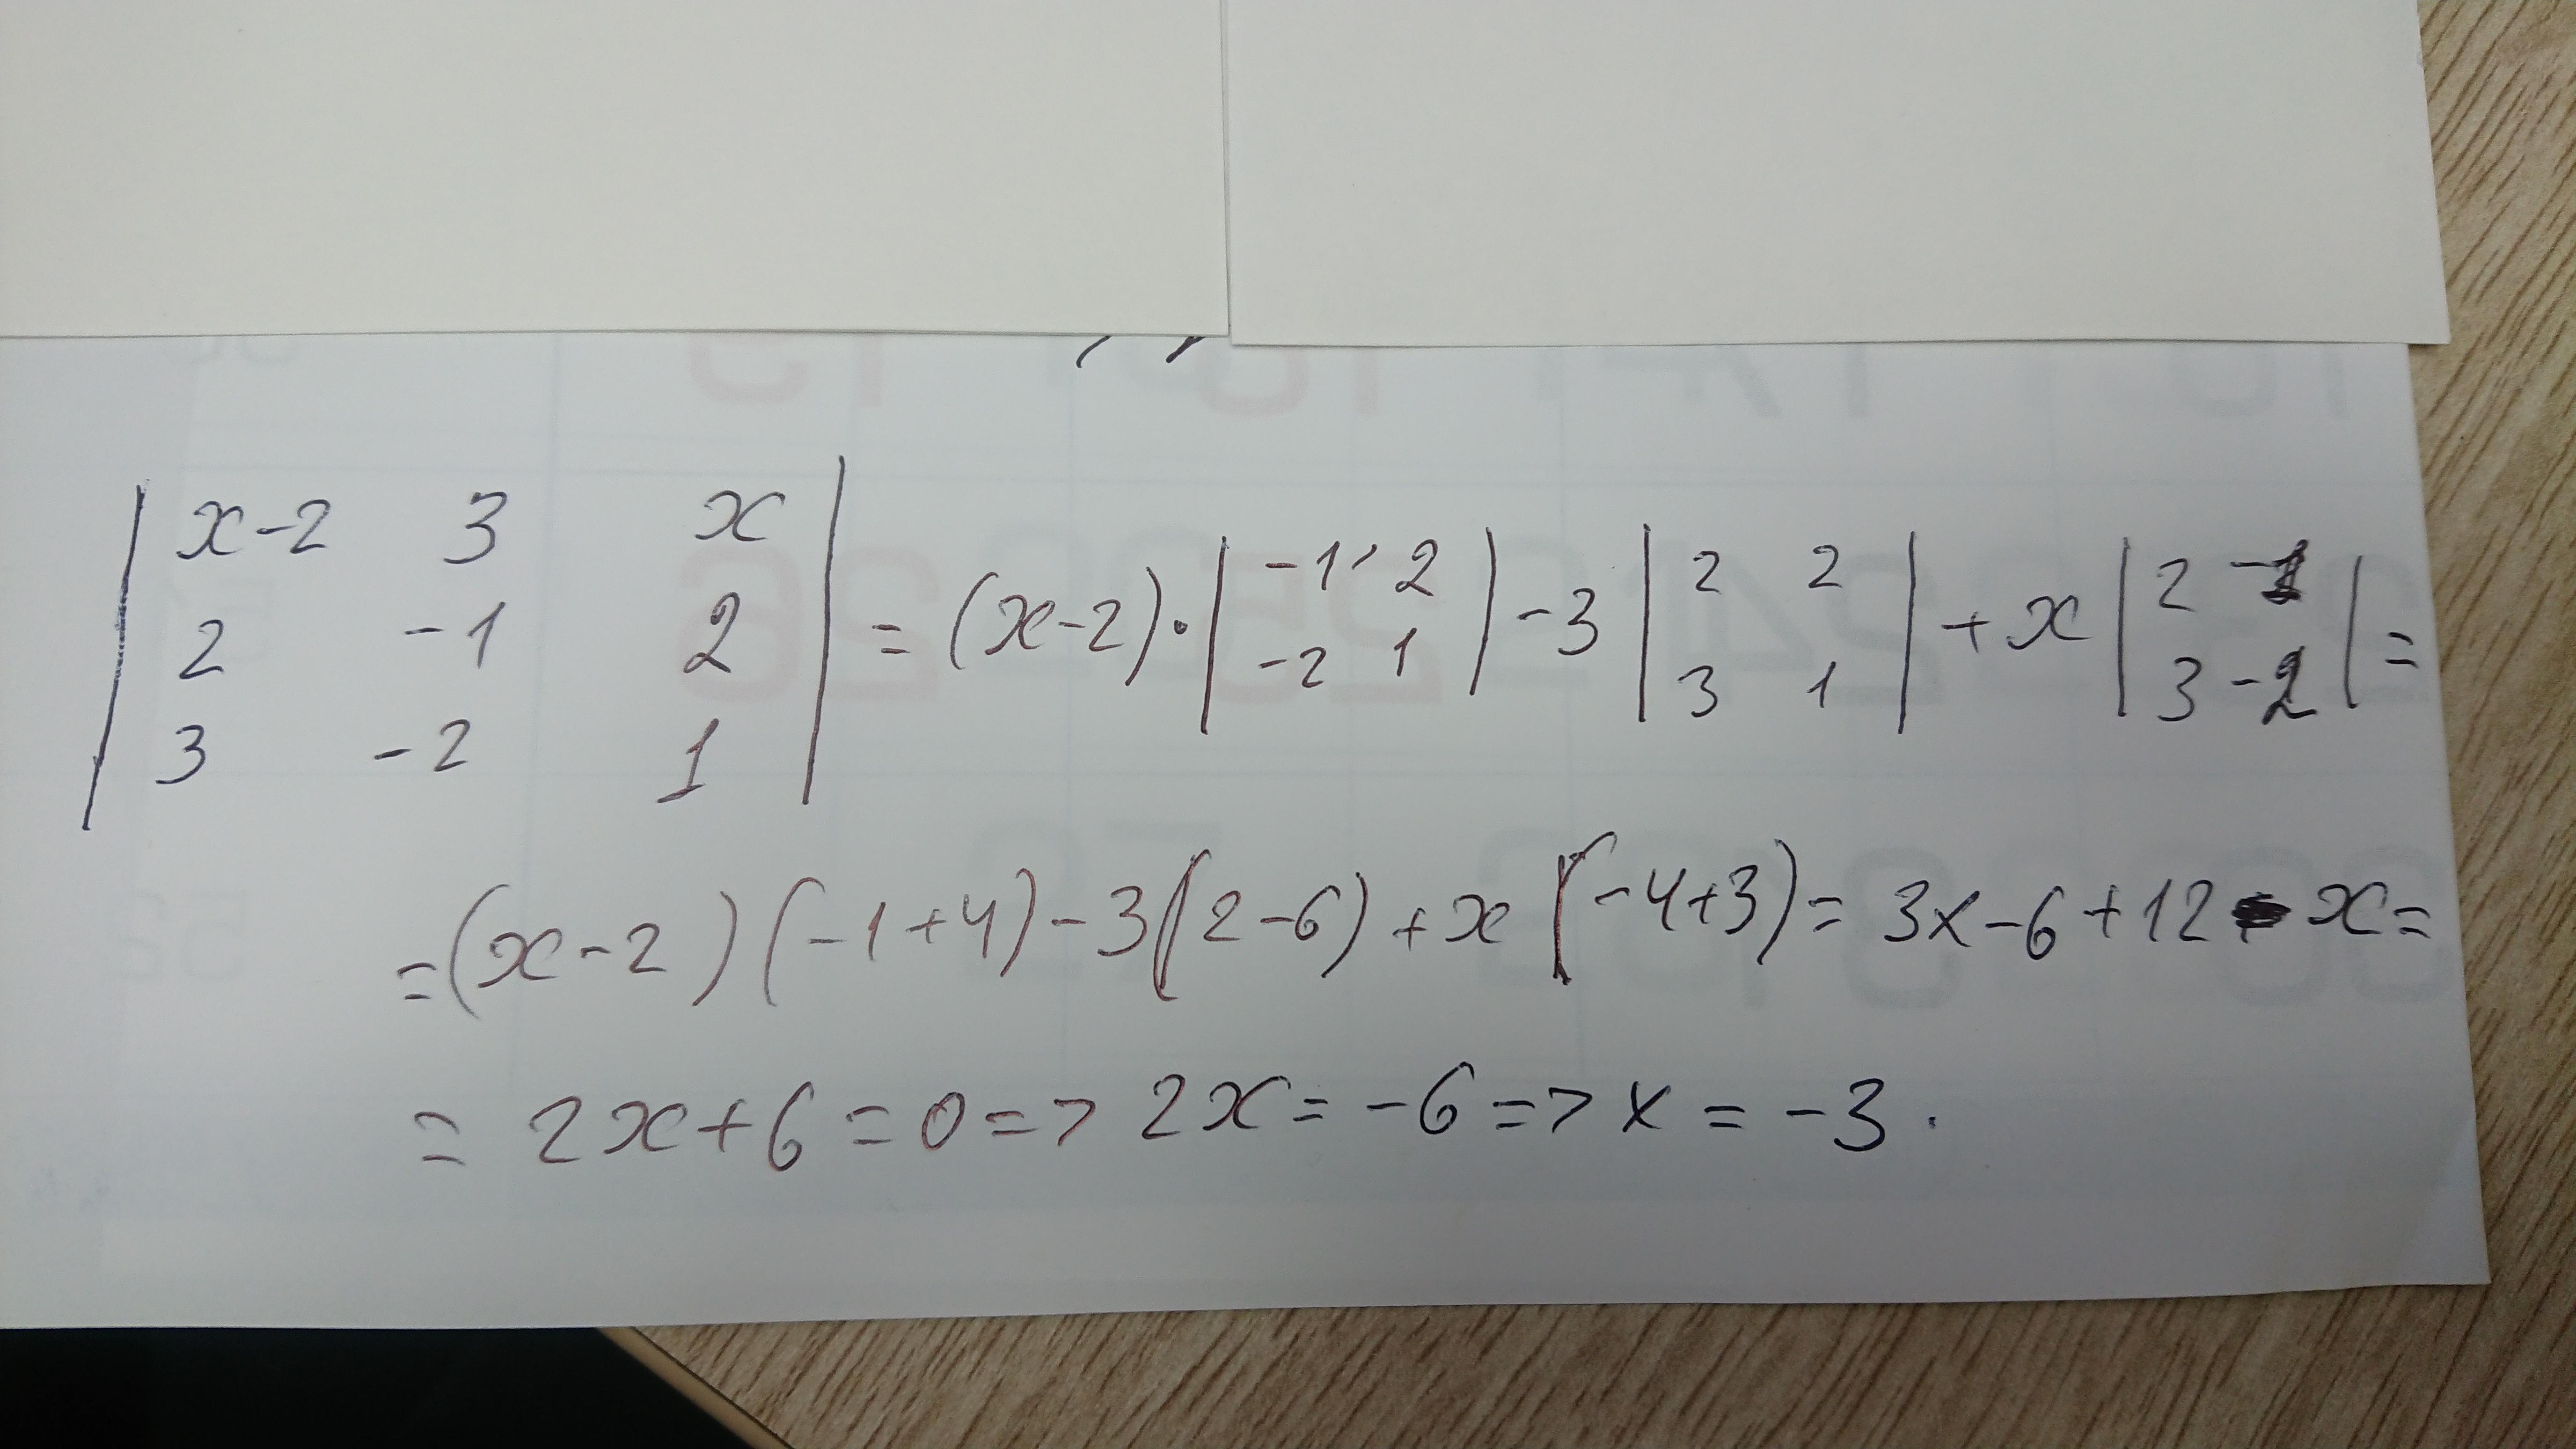 | x-2 3 x |
| 2 -1 2 | = (x-2)·| -1 2 | -3 | 2 2 | + x | 2 -1 | =
| -2 1 | | 3 1 | | 3 -2 |
| 3 -2 1 |
=(x-2)(-1+4)-3(2-6)+x(-4+3)=3x-6+12-x=
= 2x+6=0=> 2x=-6=>x=-3.